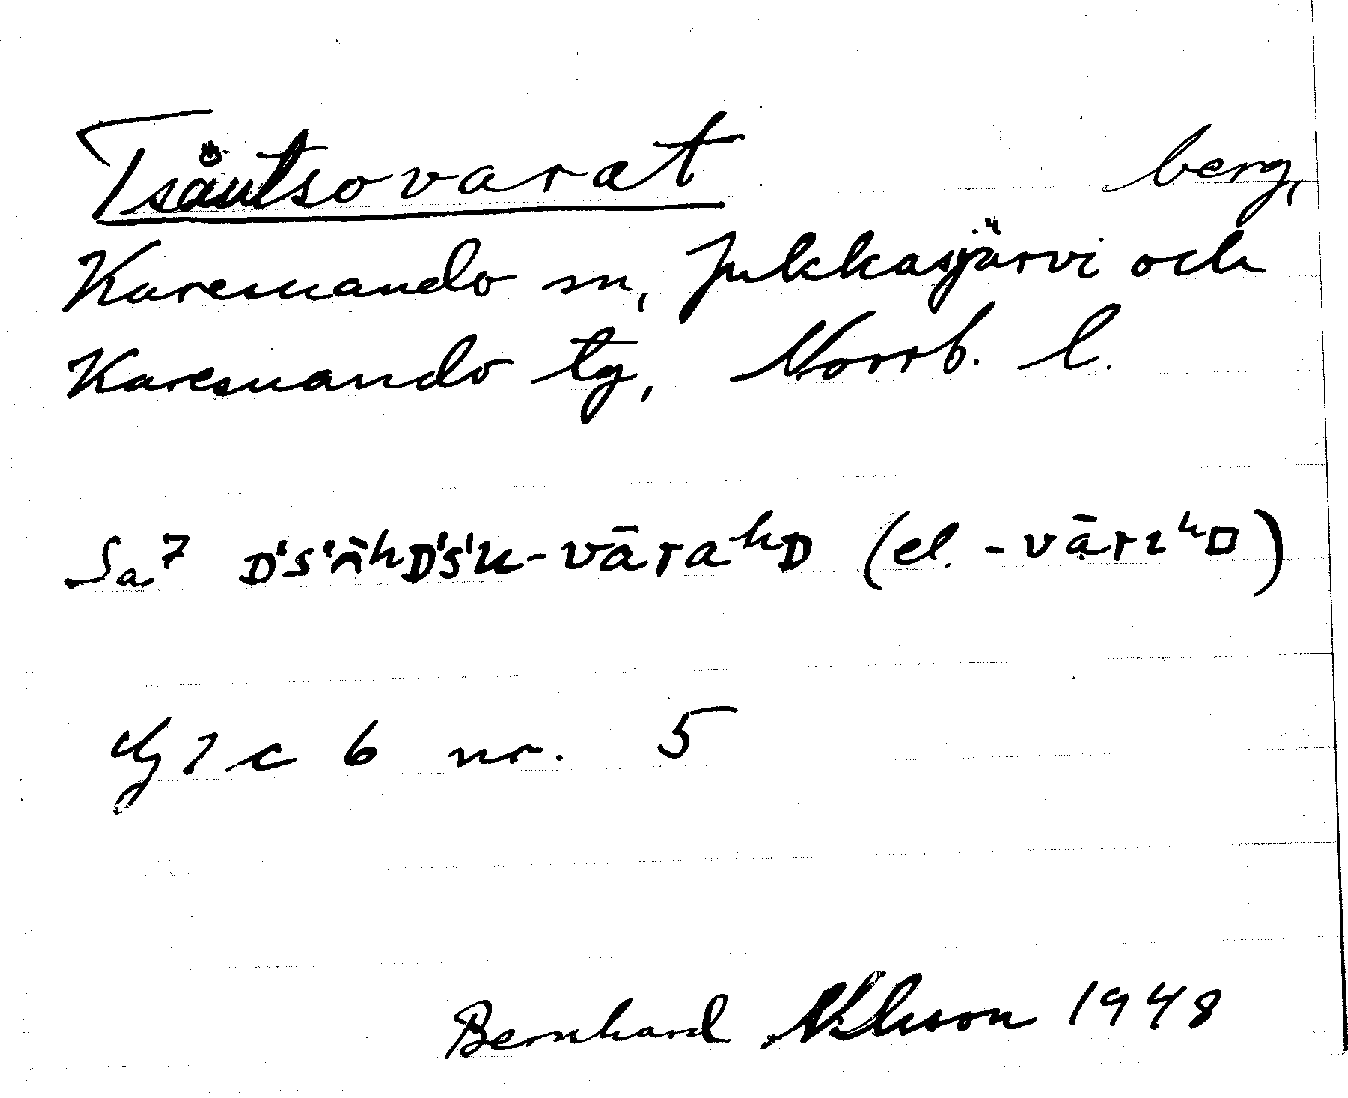 Tsåutsovarat berg,
Karesuando sn, Jukkasjärvi och
Karesuando tg, Norrb. l.
Sa7 D's'ÀʰD's'u-vāraʰD (el. -vāriʰD)
1 c 6 nr. 5
Bernhard 1948